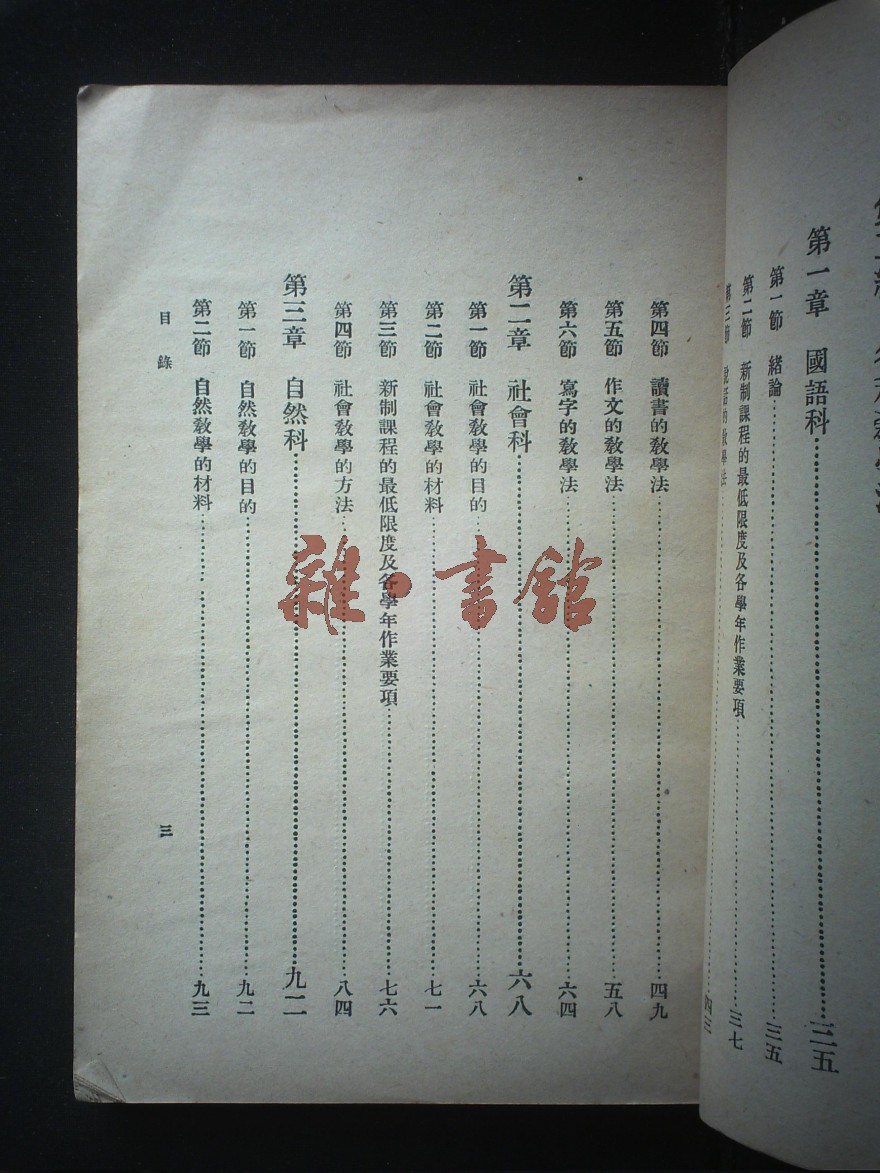 第一章　國語科……三五
第一節　緒論……三五
第二節　新制課程的最低限度及各學年作業要項……三七
第三節　說話的敎學法……四三
第四節　讀書的敎學法……四九
第五節　作文的敎學法……五八
第六節　寫字的敎學法……六四
第二章　社會科……六八
第一節　社會敎學的目的……六八
第二節　社會敎學的材料……七一
第三節　新制課程的最低限度及各學年作業要項……七六
第四節　社會敎學的方法……八四
第三章　自然科……九二
第一節　自然敎學的目的……九二
第二節　自然敎學的材料……九三
目錄
三
雜·書館